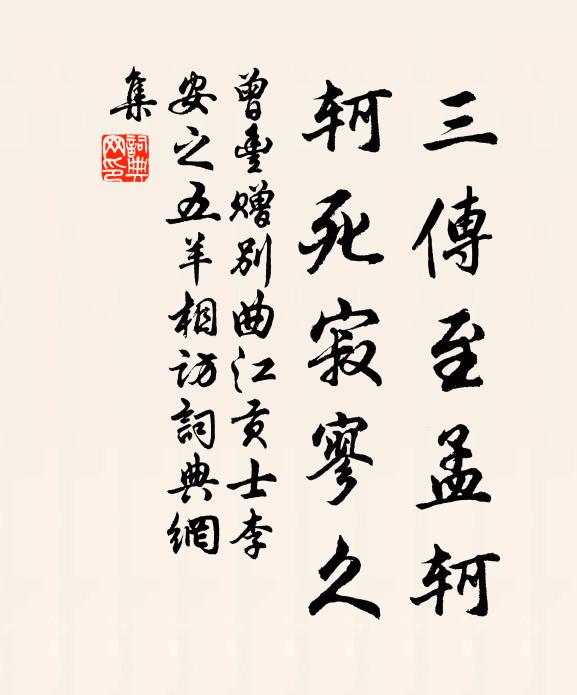 三傳至孟軻
軻死寂寥久
曾豊贈別曲江貢士李
安之五羊相訪詞典網
集
詞典網印